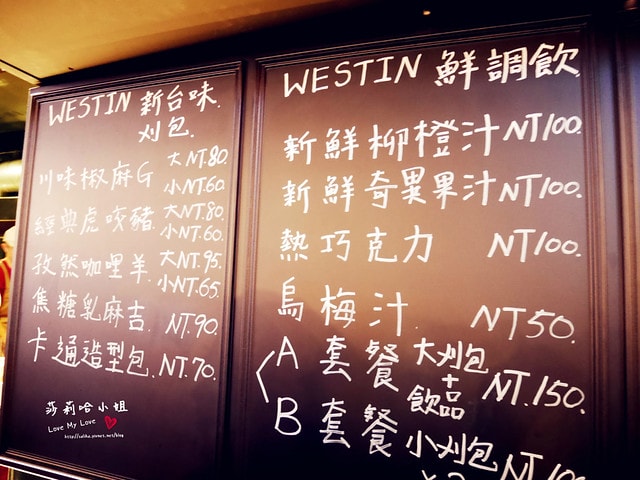 WESTIN 新台味
刈包
川味椒麻G 大NT.80.
小NT.60.
經典虎咬豬 大NT.80.
小NT.60.
孜然咖哩羊 大NT.95.
小NT.65.
焦糖乳麻吉. NT.90.
卡通造型包. NT.70.
莎莉哈小姐
Love My Love
http://saliha.pixnet.net/blog
WESTIN 鮮調飲
新鮮柳橙汁 NT100.
新鮮奇異果汁 NT100.
熱巧克力 NT100.
烏梅汁. NT50.
A套餐 大刈包
+
飲品 NT.150.
B套餐 小刈包